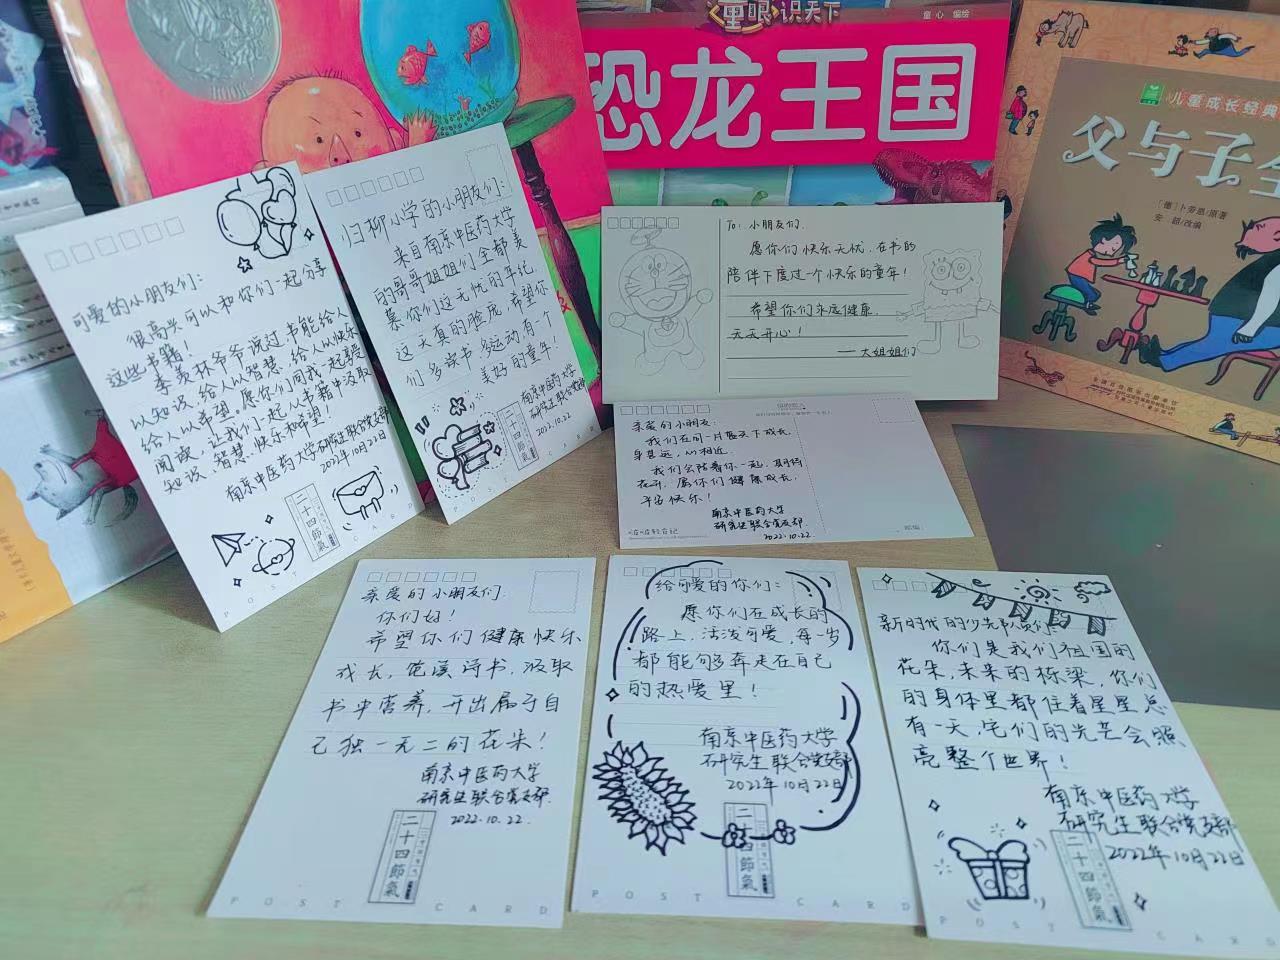 童眼识天下
童心 编绘
恐龙王国
儿童成长经典
父与子全
[德]卜劳恩/原著
安韶/改编
可爱的小朋友们：
很高兴可以和你们一起分享
这些书籍！
季羡林爷爷说过，书能给人
以知识，给人以智慧，给人以快乐
给人以希望。愿你们同我一起享受
阅读，让我们一起从书籍中汲取
知识、智慧、快乐和希望！
南京中医药大学研究生联合党支部
2022年10月22日
二十四節氣
POST CARD
归柳小学的小朋友们：
来自南京中医药大学
的哥哥姐姐们全都羡
慕你们这无忧的年纪，
这天真的脸庞，希望你
们多读书多运动有个
美好的童年！
南京中医药大学
研究生联合党支部
2022.10.22
二十四節氣
POST CARD
To：小朋友们.
愿你们快乐无忧，在书的
陪伴下度过一个快乐的童年！
希望你们永底健康，
天天开心！
——大姐姐们
亲爱的小朋友：
我们在同一片蓝天下成长，
身甚远，心相近.
我们会陪着你一起，期待
花开，愿你们健康成长，
平安快乐！
南京中医药大学
研究生联合党支部
2022.10.22
亲爱的小朋友们：
你们好！
希望你们健康快乐
成长，饱读诗书，汲取
书中营养，开出属于自
己独一无二的花朵！
南京中医药大学
研究生联合党支部
2022.10.22
二十四節氣
POST CARD
给可爱的你们：
愿你们在成长的
路上，活泼可爱，每一岁
都能够奔走在自己
的热爱里！
南京中医药大学
研究生联合党支部
2022年10月22日
二十四節氣
POST CARD
新时代的少先队员们：
你们是我们祖国的
花朵，未来的栋梁，你们
的身体里都住着星星，总
有一天，它们的光芒会照
亮整个世界！
南京中医药大学
研究生联合党支部
2022年10月22日
二十四節氣
POST CARD